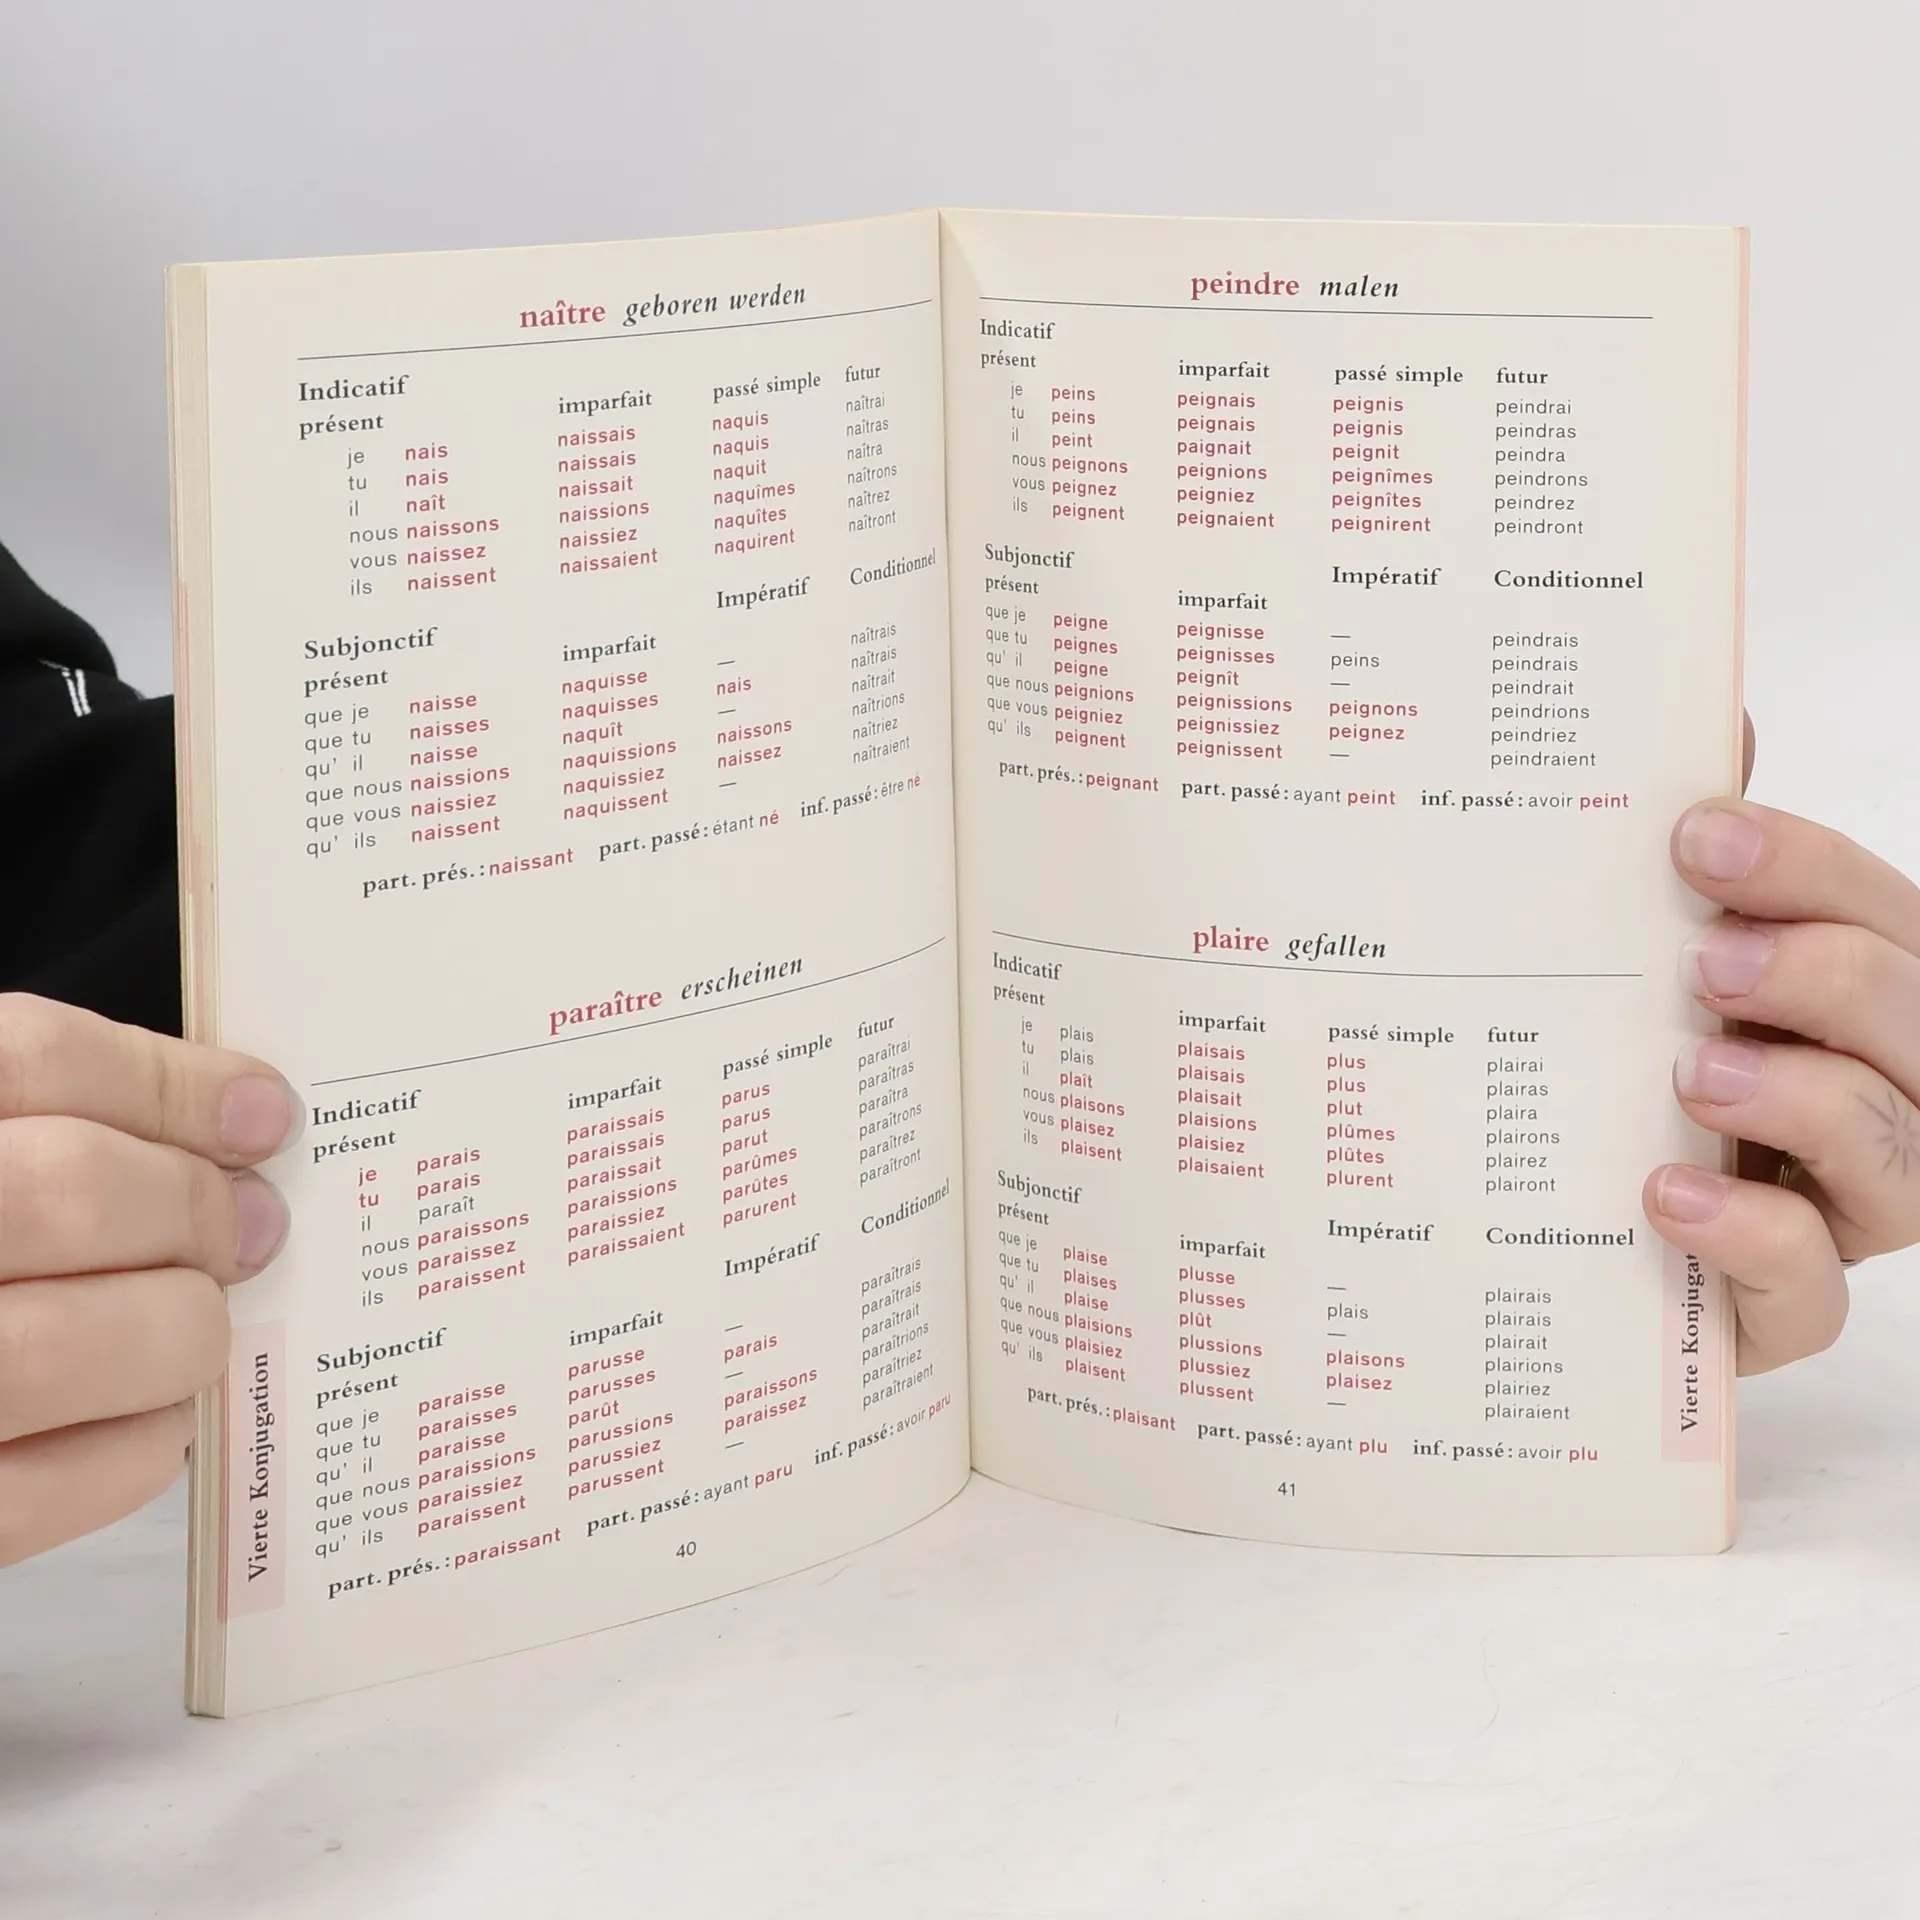 naître geboren werden
Indicatif
présent imparfait passé simple futur
je nais naissais naquis naîtrai
tu nais naissais naquis naîtras
il naît naissait naquit naîtra
nous naissons naissions naquîmes naîtrons
vous naissez naissiez naquîtes naîtrez
ils naissent naissaient naquirent naîtront
Subjonctif Impératif Conditionnel
présent imparfait
que je naisse naquisse — naîtrais
que tu naisses naquisses nais naîtrais
qu' il naisse naquît — naîtrait
que nous naissions naquissions naissons naîtrions
que vous naissiez naquissiez naissez naîtriez
qu' ils naissent naquissent — naîtraient
part. prés.: naissant part. passé: étant né inf. passé: être né
paraître erscheinen
Indicatif
présent imparfait passé simple futur
je parais paraissais parus paraîtrai
tu parais paraissais parus paraîtras
il paraît paraissait parut paraîtra
nous paraissons paraissions parûmes paraîtrons
vous paraissez paraissiez parûtes paraîtrez
ils paraissent paraissaient parurent paraîtront
Subjonctif Impératif Conditionnel
présent imparfait
que je paraisse parusse — paraîtrais
que tu paraisses parusses parais paraîtrais
qu' il paraisse parût — paraîtrait
que nous paraissions parussions paraissons paraîtrions
que vous paraissiez parussiez paraissez paraîtriez
qu' ils paraissent parussent — paraîtraient
part. prés.: paraissant part. passé: ayant paru inf. passé: avoir paru
Vierte Konjugation
40
peindre malen
Indicatif
présent imparfait passé simple futur
je peins peignais peignis peindrai
tu peins peignais peignis peindras
il peint paignait peignit peindra
nous peignons peignions peignîmes peindrons
vous peignez peigniez peignîtes peindrez
ils peignent peignaient peignirent peindront
Subjonctif Impératif Conditionnel
présent imparfait
que je peigne peignisse — peindrais
que tu peignes peignisses peins peindrais
qu' il peigne peignît — peindrait
que nous peignions peignissions peignons peindrions
que vous peigniez peignissiez peignez peindriez
qu' ils peignent peignissent — peindraient
part. prés.: peignant part. passé: ayant peint inf. passé: avoir peint
plaire gefallen
Indicatif
présent imparfait passé simple futur
je plais plaisais plus plairai
tu plais plaisais plus plairas
il plaît plaisait plut plaira
nous plaisons plaisions plûmes plairons
vous plaisez plaisiez plûtes plairez
ils plaisent plaisaient plurent plairont
Subjonctif Impératif Conditionnel
présent imparfait
que je plaise plusse — plairais
que tu plaises plusses plais plairais
qu' il plaise plût — plairait
que nous plaisions plussions plaisons plairions
que vous plaisiez plussiez plaisez plairiez
qu' ils plaisent plussent — plairaient
part. prés.: plaisant part. passé: ayant plu inf. passé: avoir plu
Vierte Konjugat
41